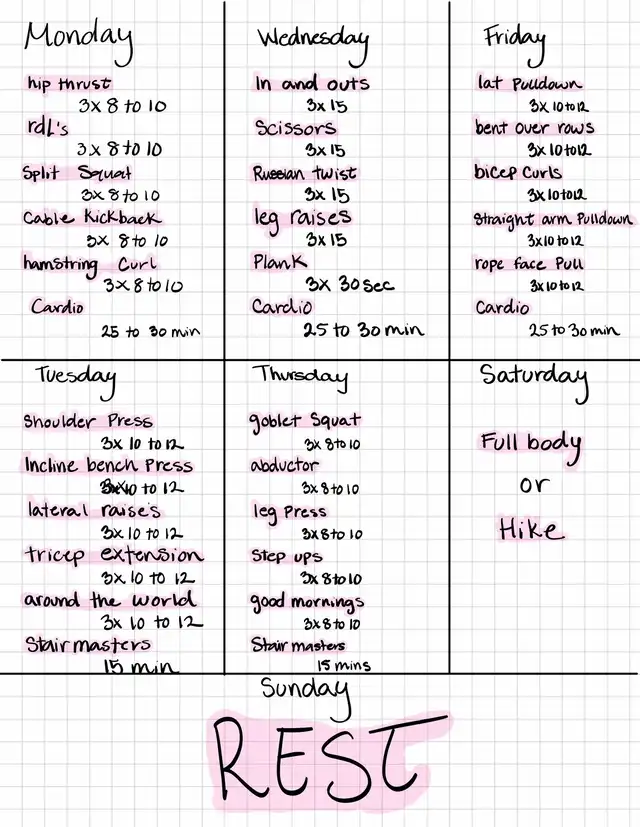 Monday
hip thrust
3x 8 to 10
rdL's
3x 8 to 10
Split Squat
3x 8 to 10
Cable Kickback
3x 8 to 10
hamstring Curl
3x 8 to 10
Cardio
25 to 30 min
Tuesday
Shoulder Press
3x 10 to 12
Incline bench Press
10 to 12
lateral raise's
3x 10 to 12
tricep extension
3x 10 to 12
around the world
3x 10 to 12
Stair masters
15 min
Wednesday
In and outs
3x 15
Scissors
3x 15
Russian twist
3x 15
leg raises
3x 15
Plank
3x 30 sec
Cardio
25 to 30 min
Thursday
goblet Squat
3x 8 to 10
abductor
3x 8 to 10
leg Press
3x 8 to 10
Step ups
3x 8 to 10
good mornings
3x 8 to 10
Stair masters
15 mins
Friday
lat Pulldown
3x 10 to 12
bent over rows
3x 10 to 12
bicep Curls
3x 10 to 12
Straight arm Pulldown
3x 10 to 12
rope face Pull
3x 10 to 12
Cardio
25 to 30 min
Saturday
Full body
or
Hike
Sunday
REST